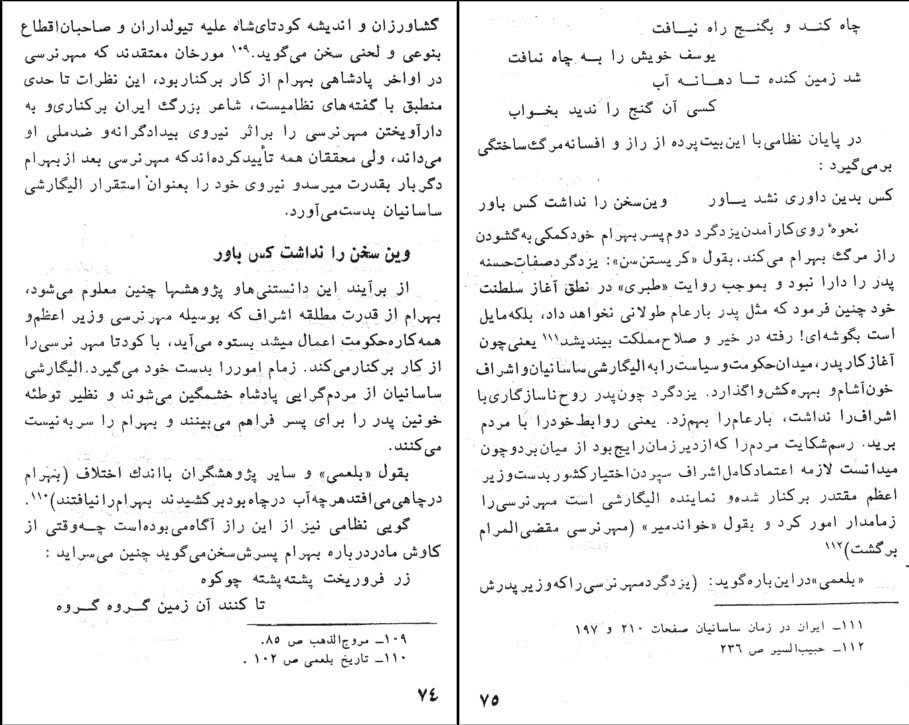 گشاورزان و اندیشه کودتای‌شاه علیه تیولداران و صاحبان‌اقطاع
بنوعی و لحنی سخن می‌گوید.۱۰۹ مورخان معتقدند که مهرنرسی
در اواخر پادشاهی بهرام از کار برکناربود، این نظرات تا حدی
منطبق با گفته‌های نظامیست، شاعر بزرگ ایران برکناری‌و به
دارآویختن مهرنرسی را براثر نیروی بیدادگرانه‌و ضدملی او
می‌داند، ولی محققان همه تأییدکرده‌اندکه مهرنرسی بعد ازبهرام
دگربار بقدرت میرسدو نیروی خود را بعنوان استقرار الیگارشی
ساسانیان بدست‌می‌آورد.
وین سخن را نداشت کس باور
از برآیند این دانستنی‌هاو پژوهشها چنین معلوم می‌شود،
بهرام از قدرت مطلقه اشراف که بوسیله مهرنرسی وزیر اعظم‌و
همه‌کاره‌حکومت اعمال میشد بستوه می‌آید، با کودتا مهر نرسی‌را
از کار برکنارمی‌کند. زمام اموررا بدست خود می‌گیرد.الیگارشی
ساسانیان از مردم‌گرایی پادشاه خشمگین می‌شوند و نظیر توطئه
خونین پدر را برای پسر فراهم می‌بینند و بهرام را سربه‌نیست
می‌کنند.
بقول «بلعمی» و سایر پژوهشگران بااندك اختلاف (بهرام
درچاهی‌می‌افتدهرچه‌آب درچاه‌بودبرکشیدند بهرام‌رانیافتند)۱۱۰.
گویی نظامی نیز از این راز آگاه‌می‌بوده‌است چه‌وقتی از
کاوش مادردرباره بهرام پسرش‌سخن‌می‌گوید چنین می‌سراید :
زر فروریخت پشته‌پشته چوکوه
تا کنند آن زمین گروه گروه
۱۰۹ــ مروج‌الذهب ص ۸۵.
۱۱۰ــ تاریخ بلعمی ص ۱۰۲ .
۷۴
چاه کند و بگنج راه نیافت
یوسف خویش را به چاه نیافت
شد زمین کنده تا دهانه آب
کسی آن گنج را ندید بخواب
در پایان نظامی‌با این‌بیت‌پرده از راز و افسانه‌مرگ‌ساختگی
برمی‌گیرد :
کس بدین داوری نشد یاور وین‌سخن را نداشت کس باور
نحوه روی‌کارآمدن‌یزدگرد دوم‌پسربهرام خودکمکی به‌گشودن
راز مرگ بهرام می‌کند،بقول «کریستن‌سن»: یزدگردصفات‌حسنه
پدر را دارا نبود و بموجب روایت «طبری» در نطق آغاز سلطنت
خود چنین فرمود که مثل پدر بارعام طولانی نخواهد داد، بلکه‌مایل
است بگوشه‌ای! رفته در خیر و صلاح‌مملکت بیندیشد۱۱۱ یعنی‌چون
آغازکارپدر،میدان‌حکومت‌وسیاست‌رابه‌الیگارشی‌ساسانیان‌واشراف
خون‌آشام‌و بهره‌کش‌واگذارد. یزدگرد چون‌پدر روح‌ناسازگاری‌با
اشراف‌را نداشت، بارعام‌را بهم‌زد. یعنی روابط‌خودرا با مردم
برید. رسم‌شکایت مردم‌را که‌ازدیرزمان‌رایج‌بود از میان‌بردوچون
میدانست لازمه اعتمادکامل‌اشراف سپردن‌اختیارکشوربدست‌وزیر
اعظم مقتدر برکنار شده‌و نماینده الیگارشی است مهرنرسی‌را
زمامدار امور کرد و بقول «خواندمیر» (مهرنرسی مقضی‌المرام
برگشت)۱۱۲
«بلعمی»دراین‌باره‌گوید: (یزدگردمهرنرسی‌راکه‌وزیرپدرش
۱۱۱ــ ایران در زمان ساسانیان صفحات ۲۱۰ و ۱۹۷
۱۱۲ــ حبیب‌السیر ص ۲۳۶
۷۵